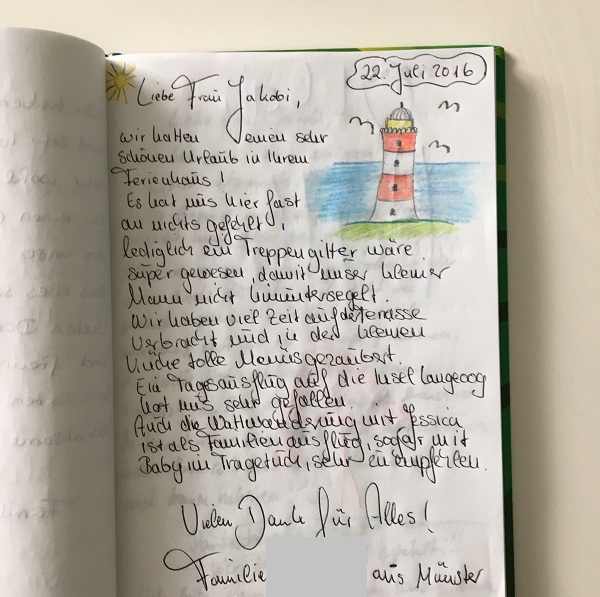 22. Juli 2016
Liebe Frau Jakobi,
wir hatten einen sehr
schönen Urlaub in Ihrem
Ferienhaus!
Es hat uns hier fast
an nichts gefehlt,
lediglich ein Treppengitter wäre
super gewesen, damit unser kleiner
Mann nicht hinuntersegelt.
Wir haben viel Zeit auf der Terrasse
verbracht und in der kleinen
Küche tolle Menüs gezaubert.
Ein Tagesausflug auf die Insel Langeoog
hat uns sehr gefallen.
Auch die Wattwanderung mit Jessica
ist als Familienausflug, sogar mit
Baby im Tragetuch, sehr zu empfehlen.
Vielen Dank für Alles!
Familie aus Münster